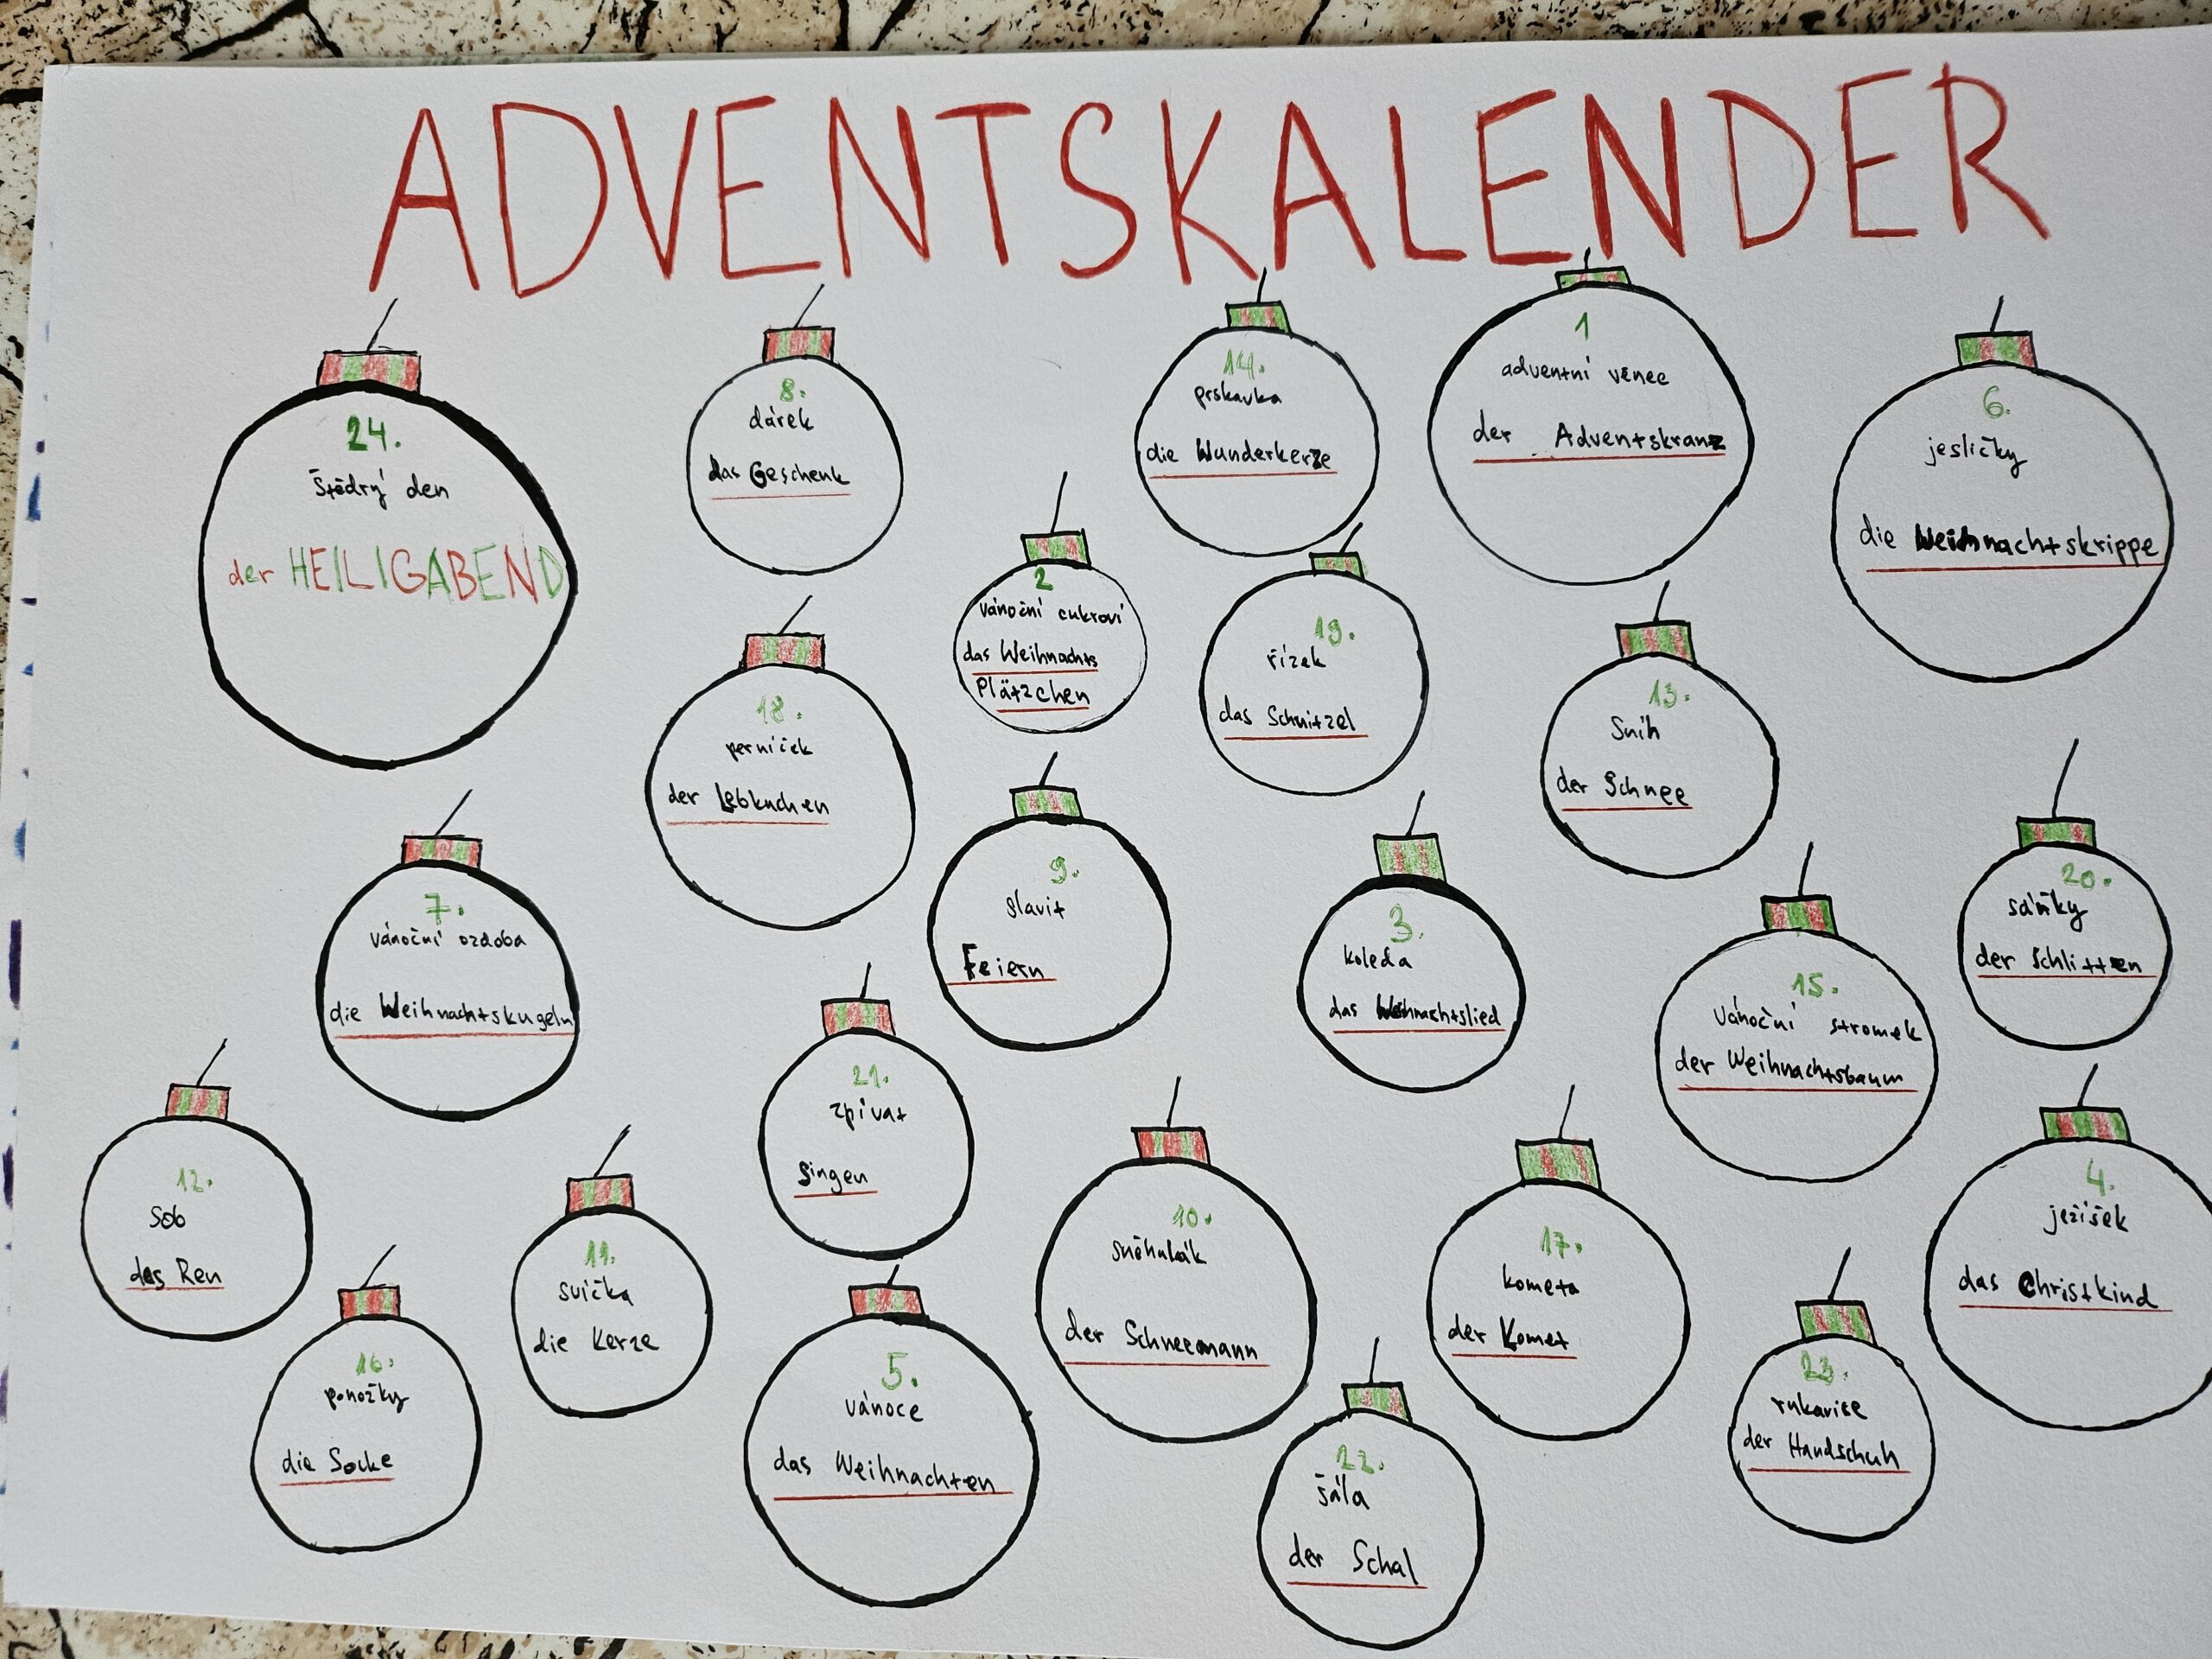 ADVENTSKALENDER
24.
Štědrý den
der HEILIGABEND
8.
dárek
das Geschenk
14.
prskavka
die Wunderkerze
1
adventní věnec
der Adventskranz
6.
jesličky
die Weihnachtskrippe
2
vánoční cukroví
das Weihnachts
Plätzchen
19.
řízek
das Schnitzel
18.
perníček
der Lebkuchen
13.
Sníh
der Schnee
7.
vánoční ozdoba
die Weihnachtskugeln
9.
slavit
Feiern
3.
koleda
das Weihnachtslied
20.
sáňky
der Schlitten
15.
Vánoční stromek
der Weihnachtsbaum
21.
zpívat
Singen
12.
Sob
das Ren
11.
svíčka
die Kerze
10.
sněhulák
der Schneemann
17.
kometa
der Komet
4.
ježíšek
das Christkind
16.
ponožky
die Socke
5.
vánoce
das Weihnachten
22.
šála
der Schal
23.
rukavice
der Handschuh